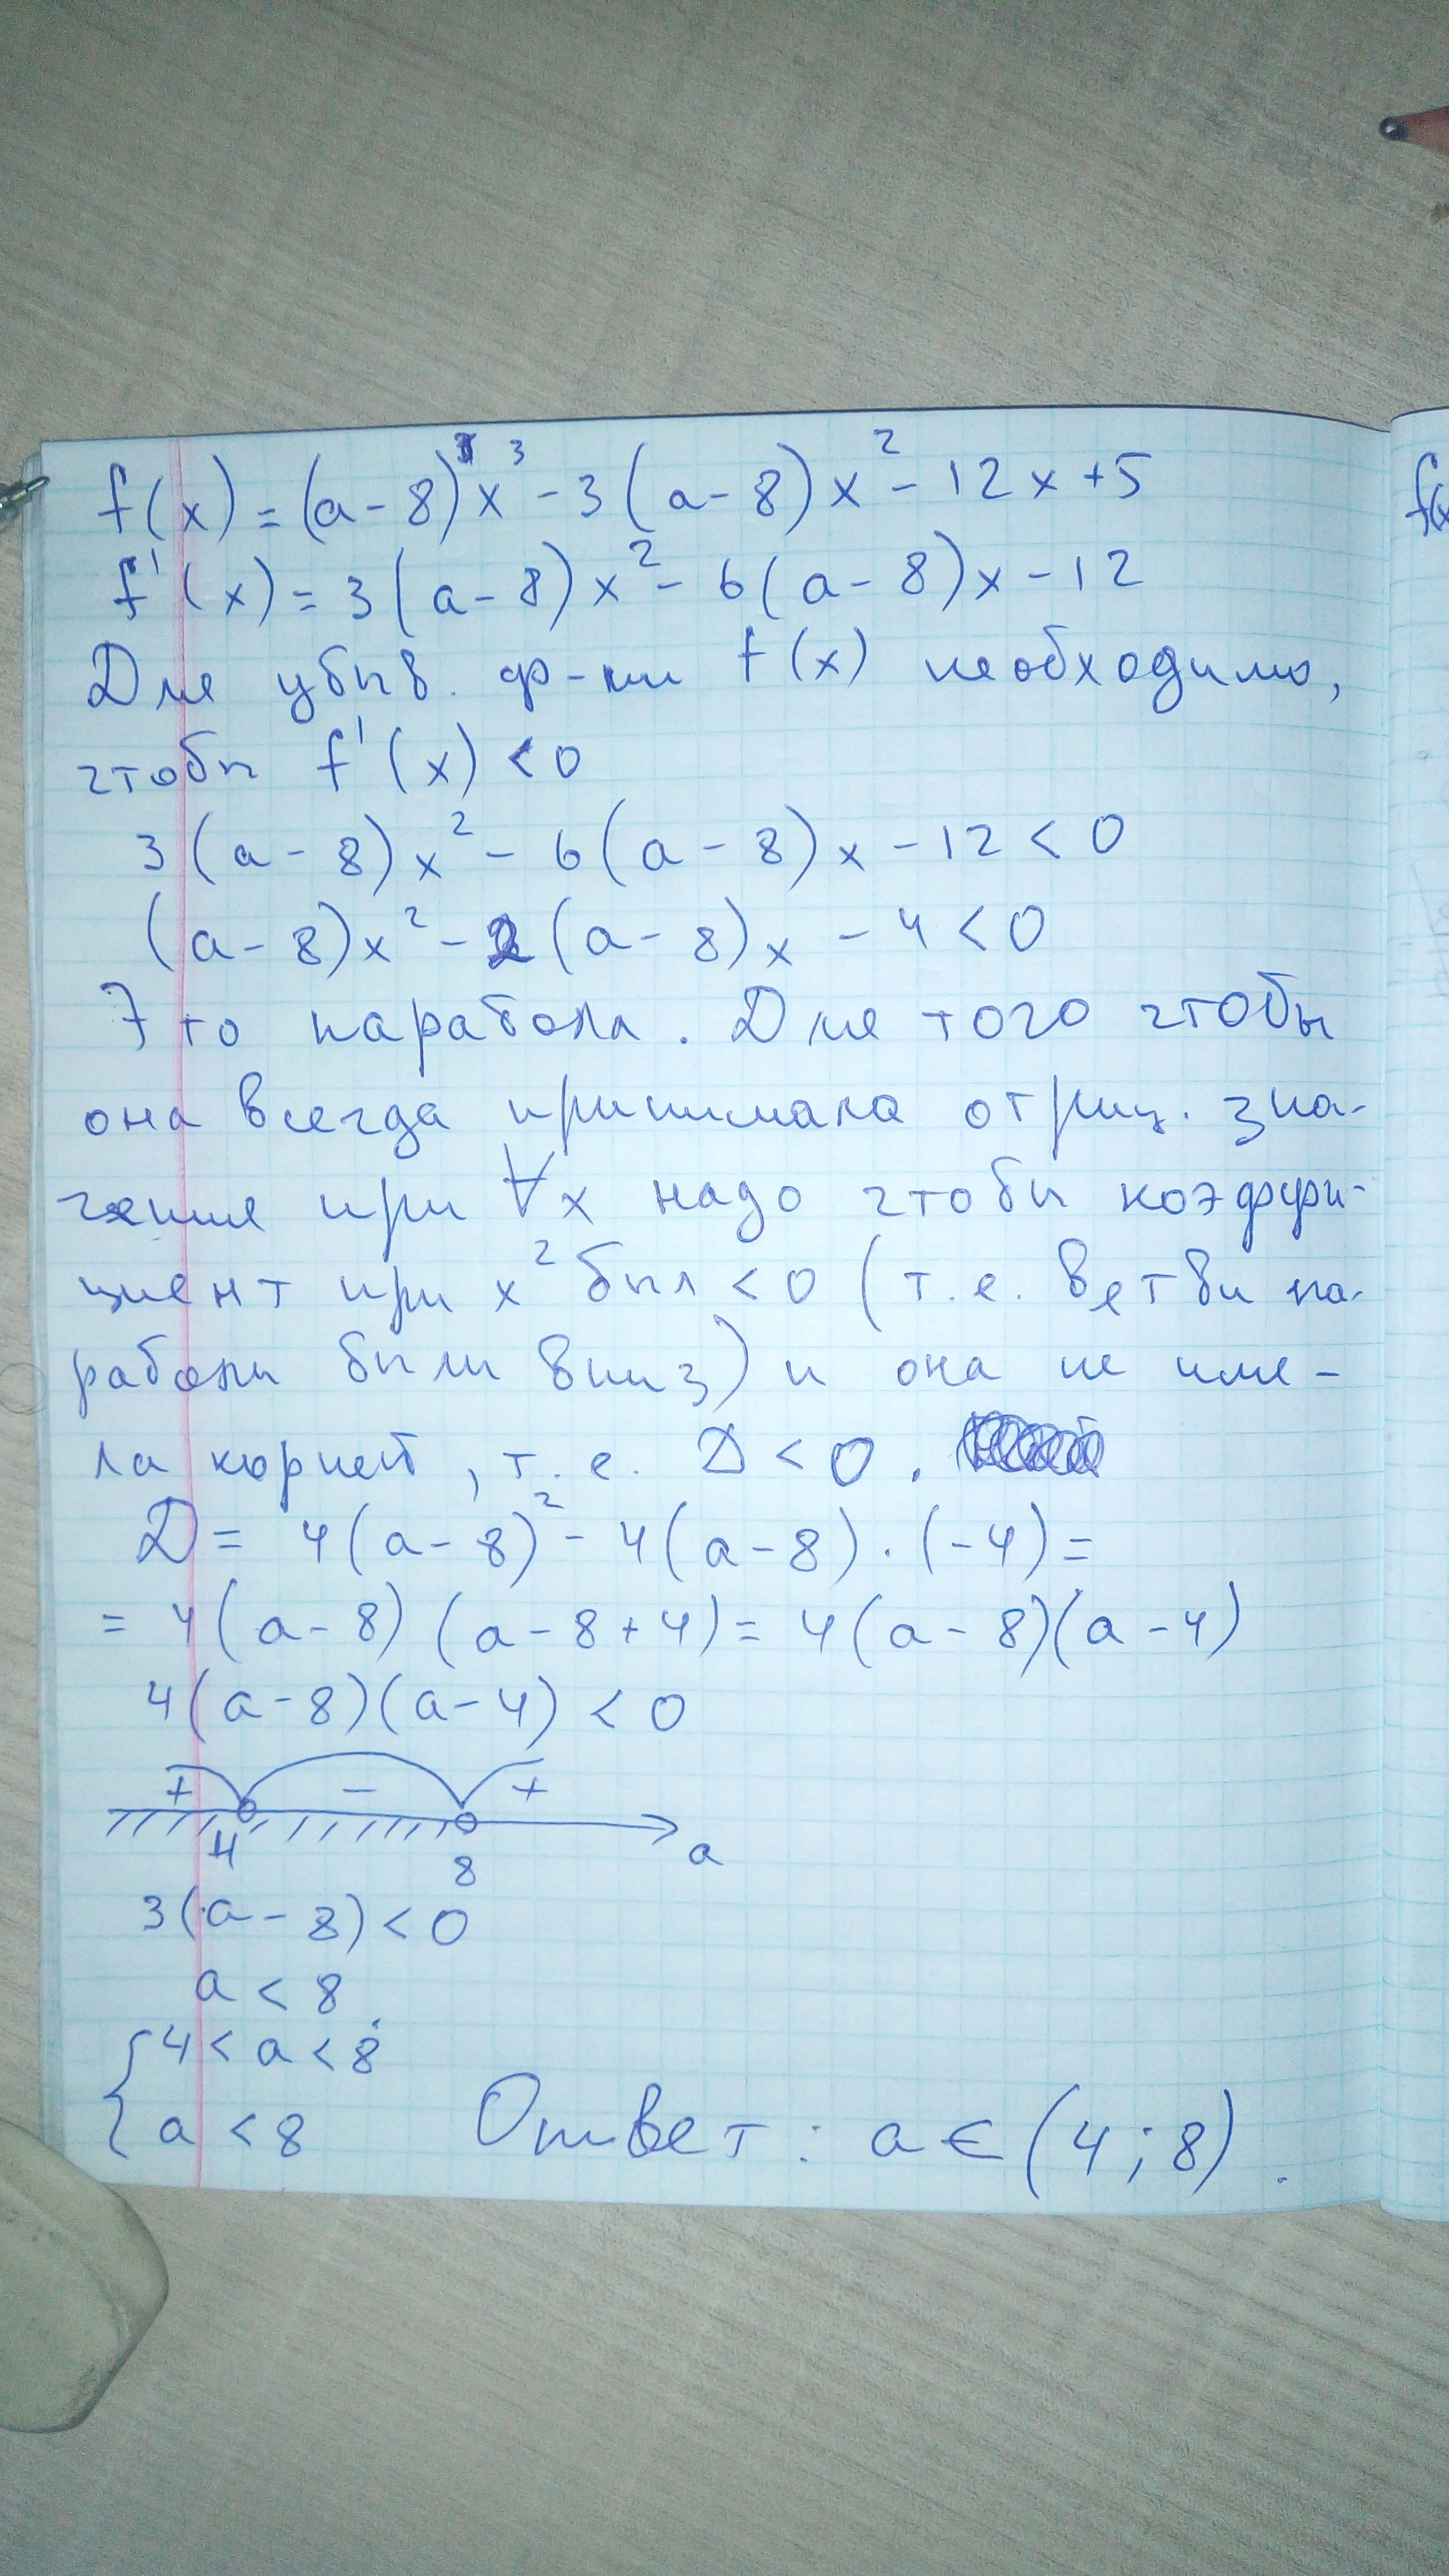 f(x) = (a-8)x³ - 3(a-8)x² - 12x + 5
f'(x) = 3(a-8)x² - 6(a-8)x - 12
Для убыв. ф-ии f(x) необходимо,
чтобы f'(x) < 0
3(a-8)x² - 6(a-8)x - 12 < 0
(a-8)x² - 2(a-8)x - 4 < 0
Это парабола. Для того чтобы
она всегда принимала отриц. зна-
чения при ∀x надо чтобы коэффи-
циент при x² был < 0 (т.е. ветви па-
раболы были вниз) и она не име-
ла корней, т.е. D < 0.
D = 4(a-8)² - 4(a-8)·(-4) =
= 4(a-8)(a-8+4) = 4(a-8)(a-4)
4(a-8)(a-4) < 0
+ - +
4 8 a
3(a-8) < 0
a < 8
{ 4 < a < 8
a < 8 Ответ: a ∈ (4; 8).